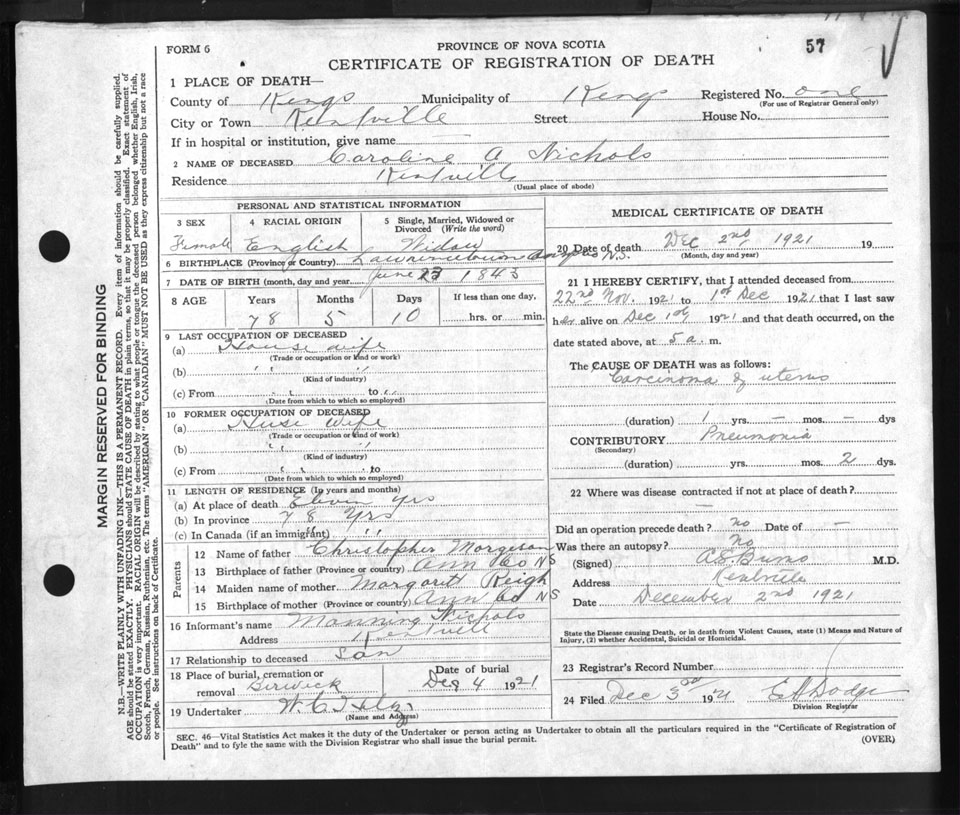 57
FORM 6
PROVINCE OF NOVA SCOTIA
CERTIFICATE OF REGISTRATION OF DEATH
MARGIN RESERVED FOR BINDING
N.B.—WRITE PLAINLY WITH UNFADING INK—THIS IS A PERMANENT RECORD. Every item of information should be carefully supplied.
AGE should be stated EXACTLY. PHYSICIANS should STATE CAUSE OF DEATH in plain terms, so that it may be properly classified. Exact statement of
OCCUPATION is very important. RACIAL ORIGIN will be described by stating to what people or tongue the deceased person belonged whether English, Irish,
Scotch, French, German, Russian, Ruthenian, etc. The terms "AMERICAN" OR "CANADIAN" MUST NOT BE USED as they express citizenship but not a race
or people. See instructions on back of Certificate.
1 PLACE OF DEATH—
County of Kings Municipality of Kings Registered No. one
(For use of Registrar General only)
City or Town Kentville Street House No.
If in hospital or institution, give name
2 NAME OF DECEASED Caroline A Nichols
Residence Kentville
(Usual place of abode)
PERSONAL AND STATISTICAL INFORMATION
3 SEX 4 RACIAL ORIGIN 5 Single, Married, Widowed or Divorced (Write the word)
Female English Widow
6 BIRTHPLACE (Province or Country) Lawrencetown N.S.
7 DATE OF BIRTH (month, day and year) June 23 1843
8 AGE Years Months Days If less than one day,
78 5 10 hrs. or min.
9 LAST OCCUPATION OF DECEASED
(a) House wife
(Trade or occupation or kind or work)
(b) " "
(Kind of industry)
(c) From " to "
(Date from which to which so employed)
10 FORMER OCCUPATION OF DECEASED
(a) House Wife
(Trade or occupation or kind of work)
(b) " "
(Kind of industry)
(c) From " to
(Date from which to which so employed)
11 LENGTH OF RESIDENCE (In years and months)
(a) At place of death yrs
(b) In province 78 Yrs
(c) In Canada (if an immigrant) " "
Parents
12 Name of father Christopher Morgeson
13 Birthplace of father (Province or country) Ann Co NS
14 Maiden name of mother Margaret Reigh
15 Birthplace of mother (Province or country) Ann Co NS
16 Informant's name Manning Nichols
Address Kentville
17 Relationship to deceased Son
18 Place of burial, cremation or removal Berwick Date of burial Dec 4 1921
19 Undertaker W. C.
(Name and Address)
MEDICAL CERTIFICATE OF DEATH
20 Date of death Dec 2nd 1921 19
(Month, day and year)
21 I HEREBY CERTIFY, that I attended deceased from
22nd Nov. 1921 to 1st Dec 1921 that I last saw
her alive on Dec 1st 1921 and that death occurred, on the
date stated above, at 5 a. m.
The CAUSE OF DEATH was as follows:
Carcinoma of uterus
(duration) 1 yrs. – mos. – dys
CONTRIBUTORY Pneumonia
(Secondary)
(duration) yrs. mos. 2 dys.
22 Where was disease contracted if not at place of death?
Did an operation precede death? no Date of –
Was there an autopsy? No
(Signed) M.D.
Address Kentville
Date December 2nd 1921
State the Disease causing Death, or in death from Violent Causes, state (1) Means and Nature of
Injury, (2) whether Accidental, Suicidal or Homicidal.
23 Registrar's Record Number
24 Filed Dec 3rd 1921 Dodge
Division Registrar
SEC. 46—Vital Statistics Act makes it the duty of the Undertaker or person acting as Undertaker to obtain all the particulars required in the "Certificate of Registration of
Death" and to fyle the same with the Division Registrar who shall issue the burial permit.
(OVER)